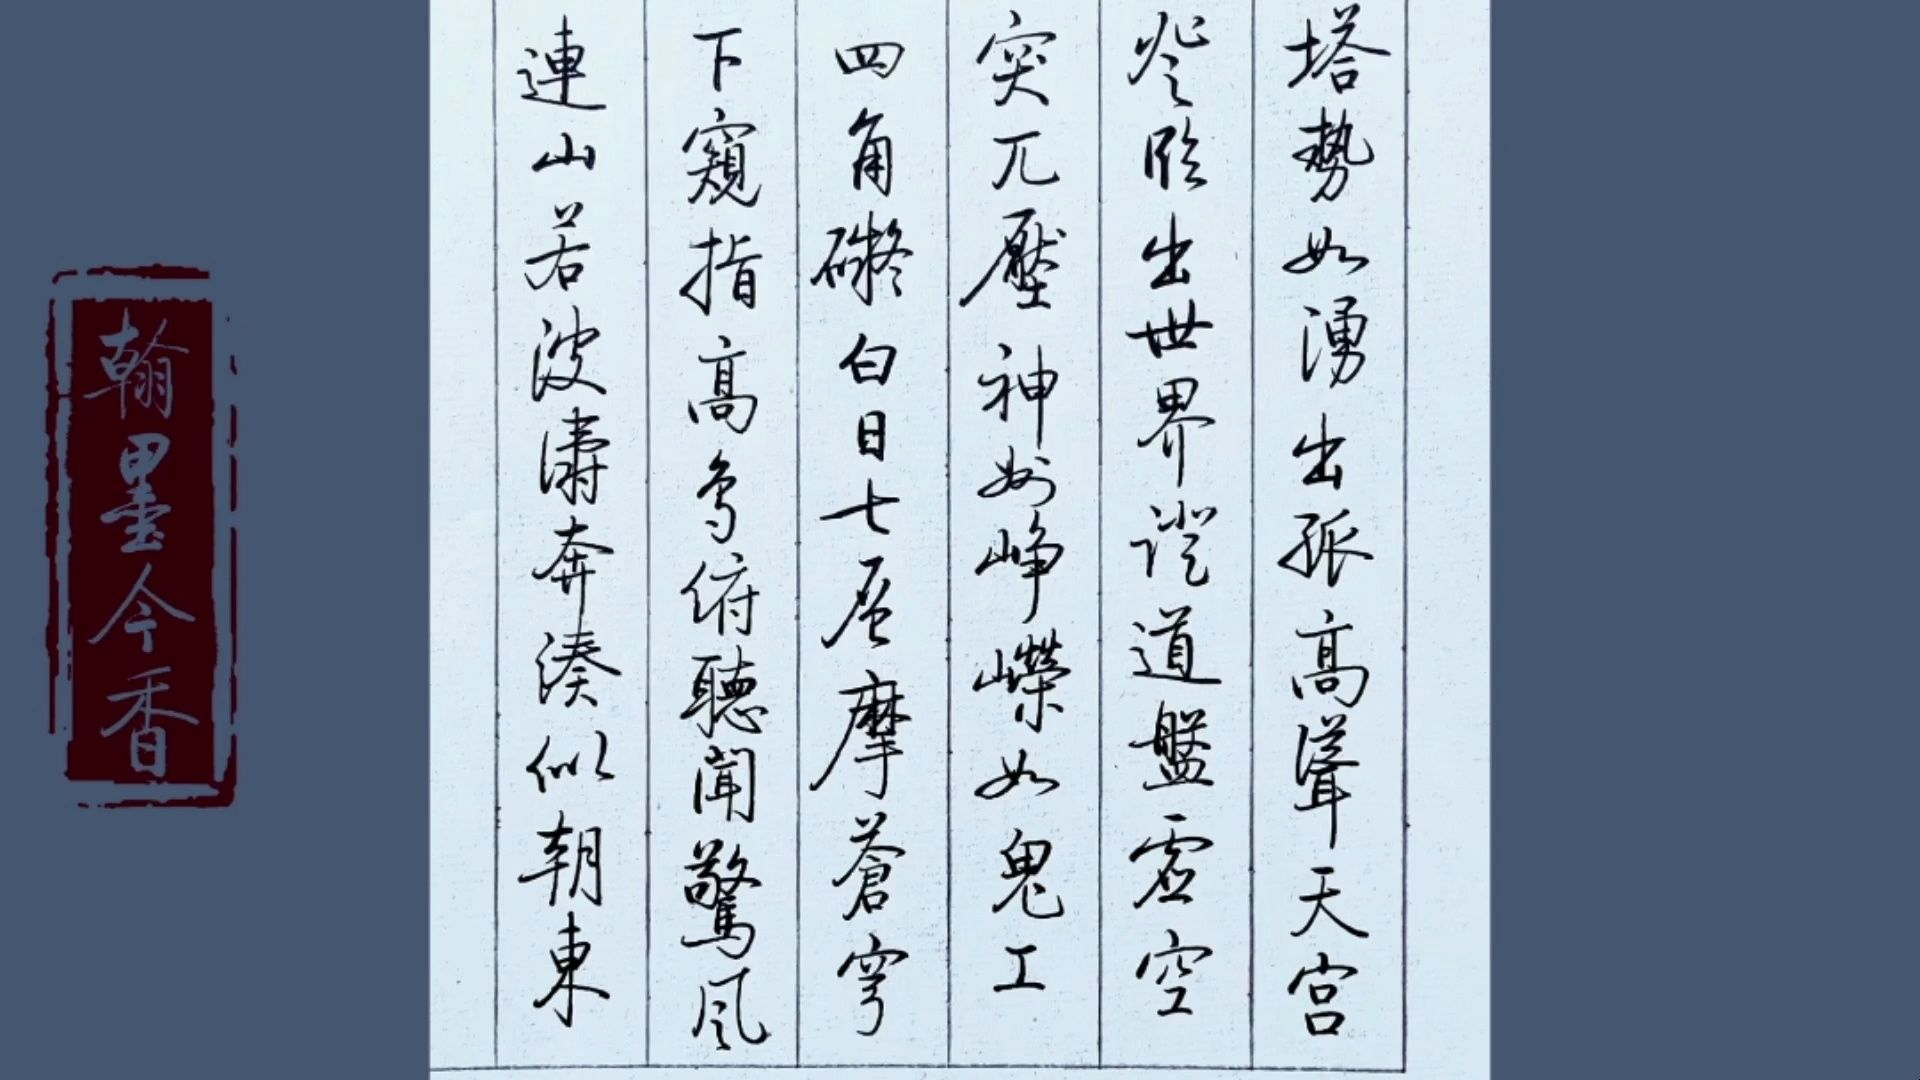 塔勢如湧出孤高聳天宮
登臨出世界蹬道盤虛空
突兀壓神州崢嶸如鬼工
四角礙白日七層摩蒼穹
下窺指高鳥俯聽聞驚風
連山若波濤奔湊似朝東
翰墨今香